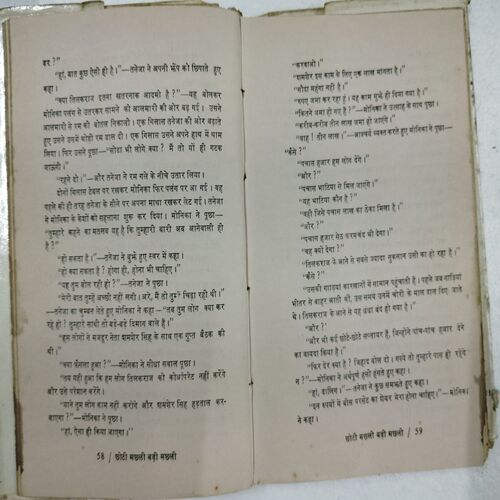 डर?"
"हां, बात कुछ ऐसी ही है।"—तनेजा ने अपनी झेंप को छिपाते हुए
कहा।
"क्या तिलकराज इतना खतरनाक आदमी है?"—यह बोलकर
मोनिका पलंग से उतरकर सामने की आलमारी की ओर बढ़ गई। उसने
आलमारी से रम की बोतल निकाली। एक गिलास तनेजा की ओर बढ़ाते
हुए उसने उसमें थोड़ी रम डाल दी। एक गिलास उसने अपने हाथ में थाम
लिया। फिर उसने पूछा—"सोडा भी लोगे क्या? मैं तो यों ही गटक
जाऊंगी।"
"रहने दो।"—और तनेजा ने रम गले के नीचे उतार लिया।
दोनों गिलास टेबल पर रखकर मोनिका फिर पलंग पर आ गई। वह
पहले की ही तरह तनेजा के सीने पर अपना माथा रखकर लेट गई। तनेजा
ने मोनिका के केशों को सहलाना शुरू कर दिया। मोनिका ने पूछा—
"तुम्हारे कहने का मतलब यह है कि तुम्हारी बारी अब आनेवाली ही
है?"
"हो सकता है।"—तनेजा ने बुझे हुए स्वर में कहा।
"हो क्या सकता है? होगा ही, होना भी चाहिए।"
"यह तुम बोल रही हो?"—तनेजा ने पूछा।
"मेरी बात तुम्हें अच्छी नहीं लगी। अरे, मैं तो तुम्हें चिढ़ा रही थी।"
—तनेजा का चुम्बन लेते हुए मोनिका ने कहा—"तब तुम लोग क्या कर
रहे हो? तुम्हारे साथी तो बड़े-बड़े दिमाग वाले हैं।"
"हम लोगों ने मजदूर नेता शमशेर सिंह के साथ एक गुप्त बैठक की
थी।"
"क्या फैसला हुआ?"—मोनिका ने सीधा सवाल पूछा।
"तय यही हुआ कि हम लोग तिलकराज को कोऑपरेट नहीं करेंगे
और उसे परेशान करेंगे।"
"याने तुम लोग काम नहीं करोगे और शमशेर सिंह हड़ताल कर-
वाएगा?"—मोनिका ने पूछा।
"हां, ऐसा ही किया जाएगा।"
58 / छोटी मछली बड़ी मछली
"करवाओ।"
"शमशेर इस काम के लिए एक लाख मांगता है।"
"सौदा महंगा नहीं है।"
"रुपए जमा कर रहा हूं। यह काम मुझे ही दिया गया है।"
"कितने जमा हो गए हैं?"—मोनिका ने उत्साह के साथ पूछा।
"करीब-करीब तीन लाख जमा हो जाएंगे।"
"वाह! तीन लाख।"—आश्चर्य व्यक्त करते हुए मोनिका ने पूछा—
"कैसे?"
"पचास हजार हम लोग देंगे।"
"और?"
"पचास भाटिया से मिल जाएंगे।"
"यह भाटिया कौन है?"
"वही जिसे पचास लाख का ठेका मिला है।"
"और?"
"पचास हजार सेठ करमचंद भी देगा।"
"वह क्यों देगा?"
"तिलकराज के आने से सबसे ज्यादा नुकसान उसी का हो रहा है।"
"कैसे?"
"उसकी गाड़ियां कारखानों में सामान पहुंचाती हैं। पहले जब गाड़ियां
भीतर से बाहर आती थीं, उस समय उनमें चोरी का माल डाल दिए जाते
थे। तिलकराज के आने से यह धंधा बंद हो गया है।"
"और?"
"और भी कई छोटे-छोटे सप्लायर हैं, जिन्होंने पांच-पांच हजार देने
का वायदा किया है।"
"फिर देर क्या है? जिहाद बोल दो। रुपये तो तुम्हारे पास ही रहेंगे
न?"—मोनिका ने अर्थपूर्ण हंसी हंसते हुए कहा।
"हां, डार्लिंग।"—तनेजा ने कुछ समझते हुए कहा।
"इन रुपयों में बीस परसेंट का शेयर मेरा होना चाहिए।"—मोनिका
ने कहा।
छोटी मछली बड़ी मछली / 59